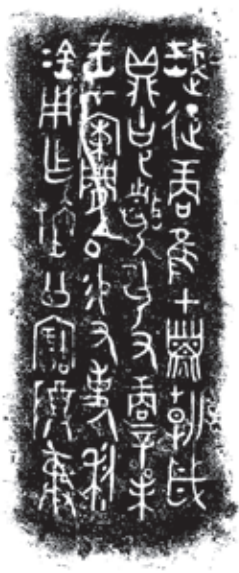 珷征商隹甲子朝歲
鼎克昏夙又商辛未
王才𨷼𠂤易又事利
金用乍𣄰公寶䵼彝